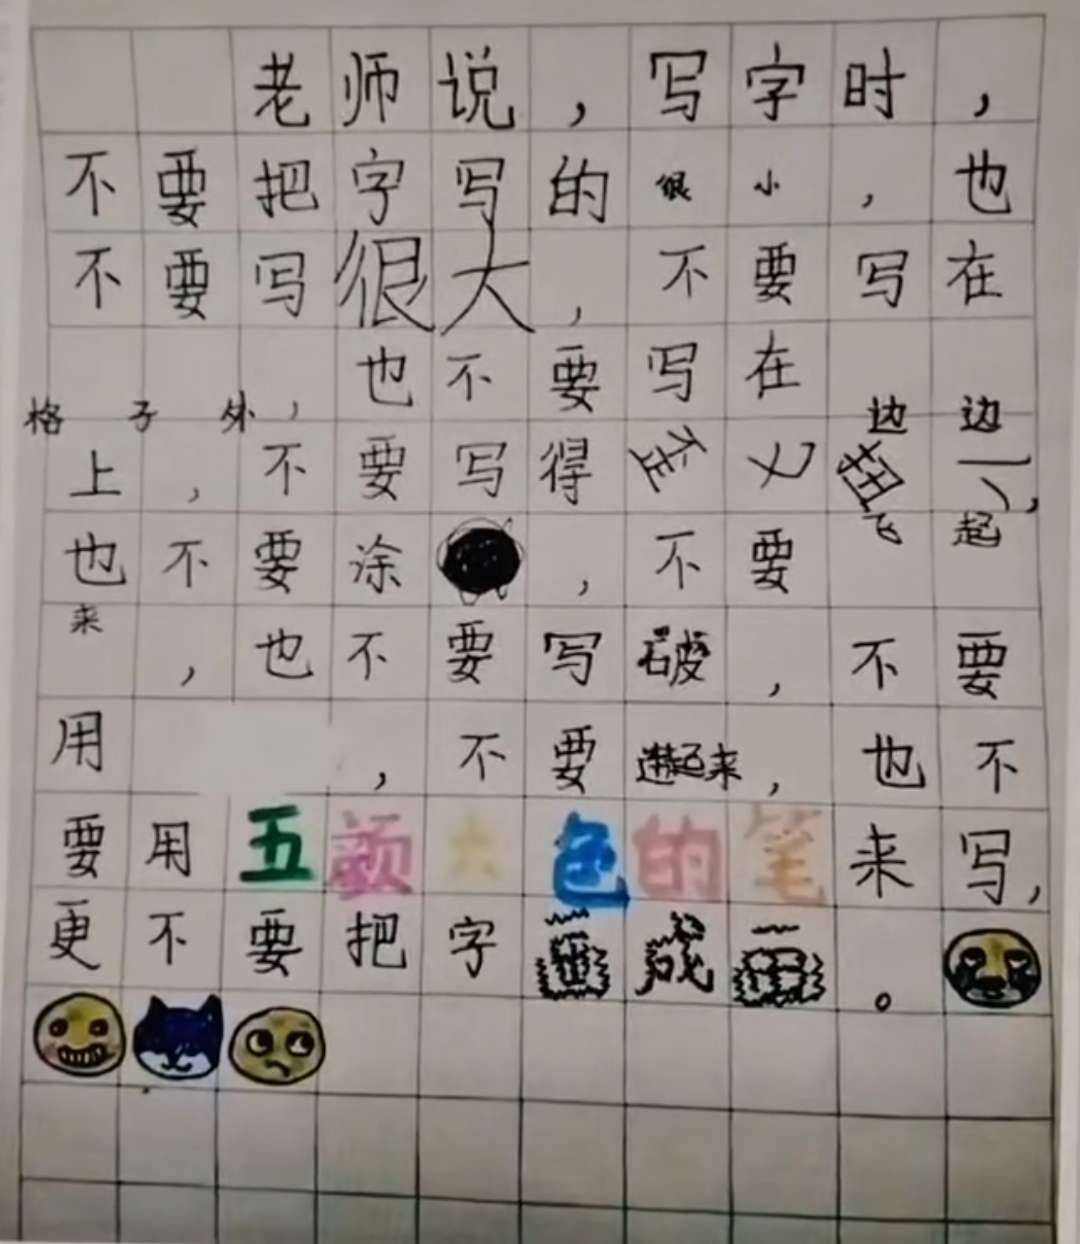 老师说，写字时，
不要把字写的很小，也
不要写很大，不要写在
格子外，也不要写在边边
上，不要写得歪七扭八，
也不要涂，不要飞起
来，也不要写破，不要
用，不要进起来，也不
要用五颜六色的笔来写，
更不要把字画成画。